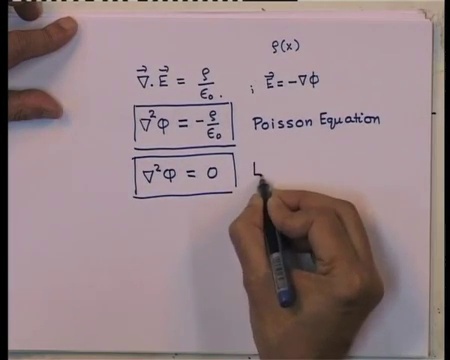 ρ(x)
∇⃗.E⃗ = ρ/ε₀. ; E⃗ = -∇Φ
∇²Φ = -ρ/ε₀ Poisson Equation
∇²Φ = 0 L